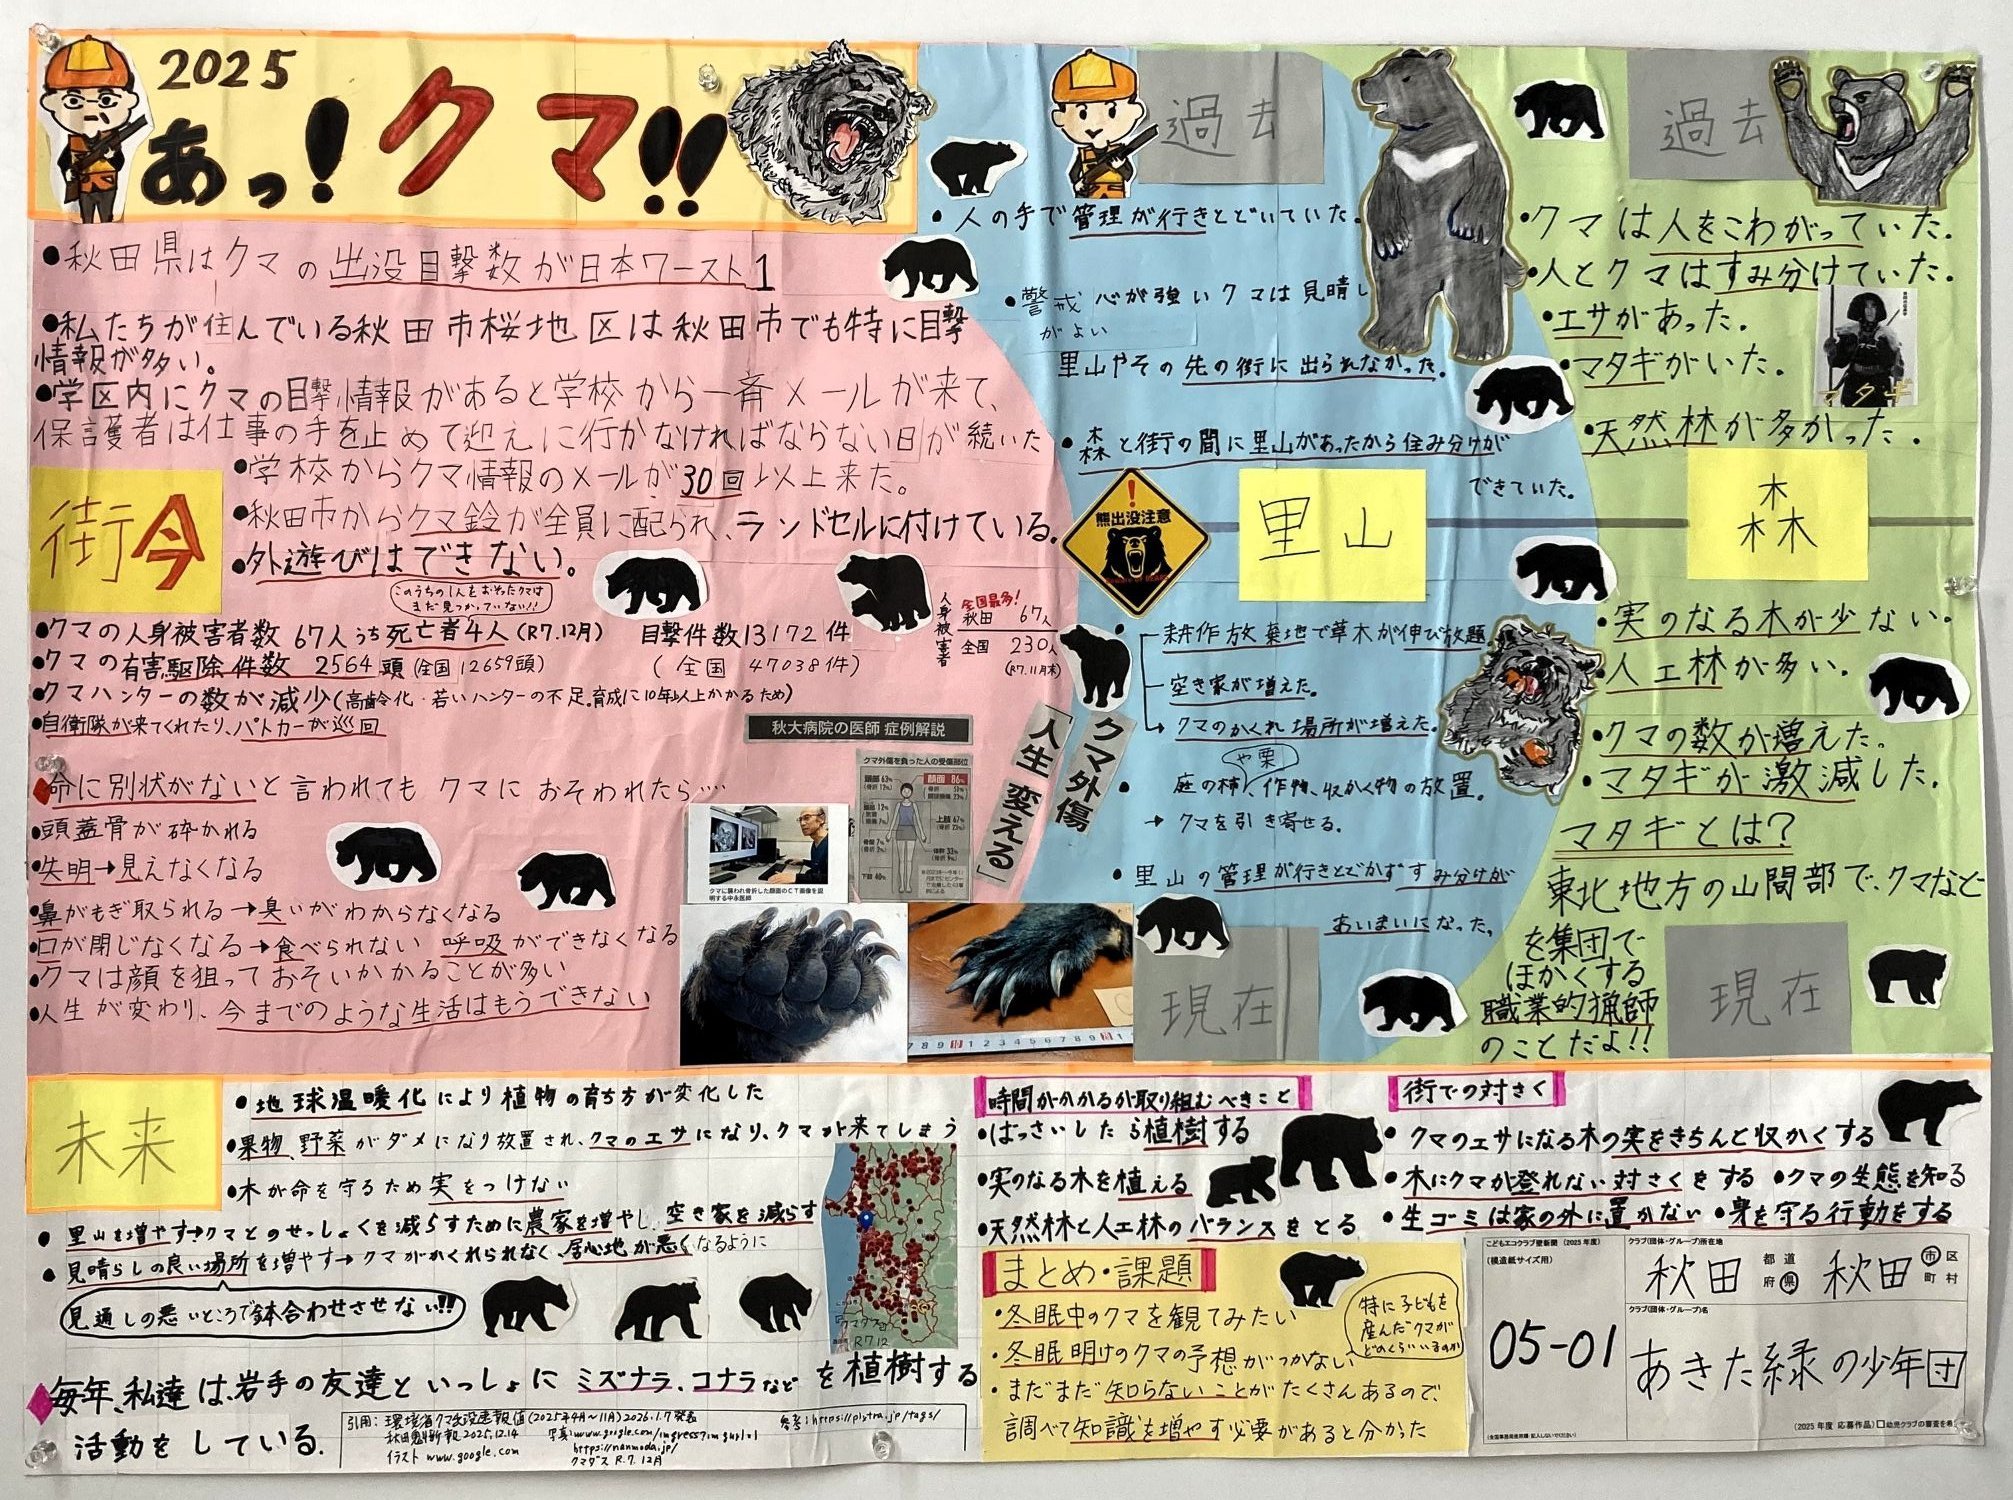 2025
あっ!クマ!!
●秋田県はクマの出没目撃数が日本ワースト1
●私たちが住んでいる秋田市桜地区は秋田市でも特に目撃
情報が多い。
●学区内にクマの目撃情報があると学校から一斉メールが来て、
保護者は仕事の手を止めて迎えに行かなければならない日が続いた
●学校からクマ情報のメールが30回以上来た。
●秋田市からクマ鈴が全員に配られ、ランドセルに付けている。
●外遊びはできない。
街 今
このうちの1人をおそったクマは
まだ見つかっていない!!
●クマの人身被害者数 67人うち死亡者4人(R7.12月) 目撃件数13172件
●クマの有害駆除件数 2564頭(全国12659頭) (全国 47038件)
●クマハンターの数が減少(高齢化・若いハンターの不足.育成に10年以上かかるため)
●自衛隊が来てくれたり、パトカーが巡回
人身被害者
全国最多!
秋田 67人
全国 230人
(R7.11月末)
◆命に別状がないと言われても クマに おそわれたら…
●頭蓋骨が砕かれる
●失明→見えなくなる
●鼻がもぎ取られる→臭いがわからなくなる
●口が閉じなくなる→食べられない 呼吸ができなくなる
●クマは顔を狙っておそいかかることが多い
●人生が変わり、今までのような生活はもうできない
秋大病院の医師 症例解説
クマ外傷を負った人の受傷部位
頭部 63%
(骨折 12%)
顔面 86%
上肢 67%
下肢 40%
クマに襲われ骨折した顔面のCT画像を説
明する中永医師
クマ外傷
「人生 変える」
過去
・人の手で管理が行きとどいていた。
●警戒心が強いクマは見晴し
がよい
里山やその先の街に出られなかった。
●森と街の間に里山があったから住み分けが
できていた。
熊出没注意
里山
・耕作放棄地で草木が伸び放題
空き家が増えた。
→クマのかくれ場所が増えた。
や栗
・庭の柿、作物、収かく物の放置。
→クマを引き寄せる。
・里山の管理が行きとどかずすみ分けが
あいまいになった。
現在
過去
・クマは人をこわがっていた。
・人とクマはすみ分けていた。
・エサがあった。
・マタギがいた。
マタギ
・天然林が多かった。
森
・実のなる木が少ない。
・人工林が多い。
・クマの数が増えた。
・マタギが激減した。
マタギとは?
東北地方の山間部で、クマなど
を集団で
ほかくする
職業的猟師
のことだよ!!
現在
未来
●地球温暖化により植物の育ち方が変化した
●果物、野菜がダメになり放置され、クマのエサになり、クマが来てしまう
●木が命を守るため実をつけない
●里山を増やす→クマとのせっしょくを減らすために農家を増やし、空き家を減らす
●見晴らしの良い場所を増やす→クマがかくれられなく、居心地が悪くなるように
見通しの悪いところで鉢合わせさせない!!
「クマダス」
R7.12
◆毎年、私達は、岩手の友達といっしょにミズナラ、コナラなどを植樹する
活動をしている。
引用:環境省クマ出没速報値(2025年4月~11月)2026.1.7発表
秋田魁新報2025.12.14
イラスト www.google.com
写真:www.google.com/imgres?imgurl=1
https://nanmoda.jp/
クマダス R.7.12月
参考:https://pixta.jp/tags/
時間がかかるが取り組むべきこと
●ばっさいしたら植樹する
●実のなる木を植える
●天然林と人工林のバランスをとる
街での対さく
●クマのエサになる木の実をきちんと収かくする
●木にクマが登れない対さくをする ●クマの生態を知る
●生ゴミは家の外に置かない ●身を守る行動をする
まとめ・課題
・冬眠中のクマを観てみたい
・冬眠明けのクマの予想がつかない
・まだまだ知らないことがたくさんあるので、
調べて知識を増やす必要があると分かった
特に子どもを
産んだクマが
どのくらいいるのか
こどもエコクラブ壁新聞(2025年度)
(模造紙サイズ用)
05-01
クラブ(団体・グループ)所在地
秋田 都道府県 秋田 市区町村
クラブ(団体・グループ)名
あきた緑の少年団
(2025年度 応募作品)□幼児クラブの審査を希
(全国事務局使用欄・記入しないでください)